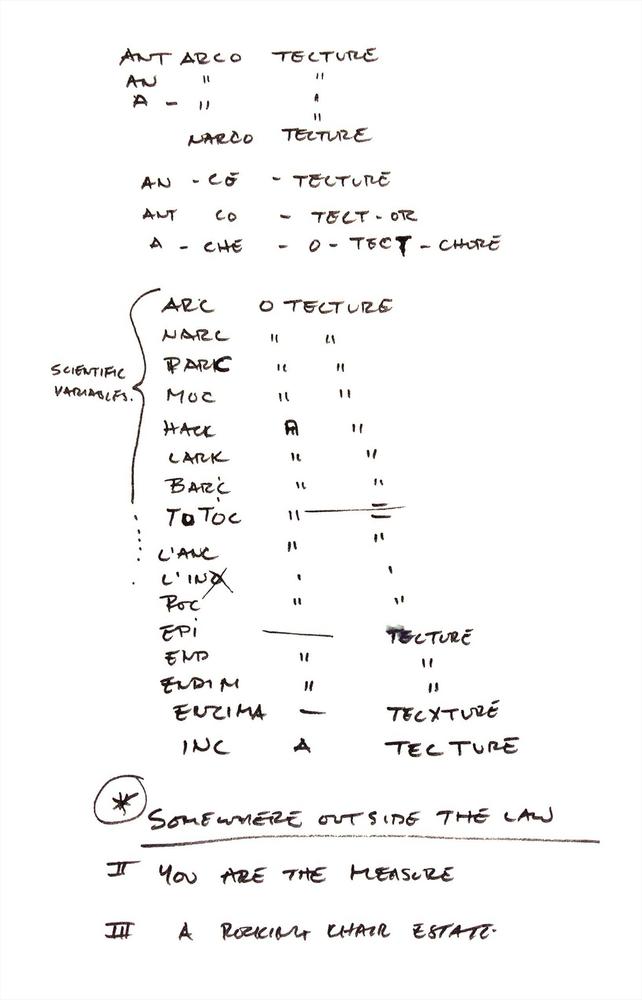 ANT ARCO TECTURE
AN " "
A - " "
"
NARCO TECTURE
AN - CÉ - TECTURE
ANT CO - TECT - OR
A - CHE - O - TECT - CHORE
SCIENTIFIC
VARIABLES.
ARC O TECTURE
NARC " "
PARC " "
MOC " "
HACK A "
LARK " "
BARC " "
TOTOC "
L'ANC " "
"
POC " "
EPI — TECTURE
END " "
ENDIM " "
ENZIMA — TECXTURE
INC A TECTURE
* SOMEWHERE OUTSIDE THE LAW
II YOU ARE THE MEASURE
III A ROCKING CHAIR ESTATE.